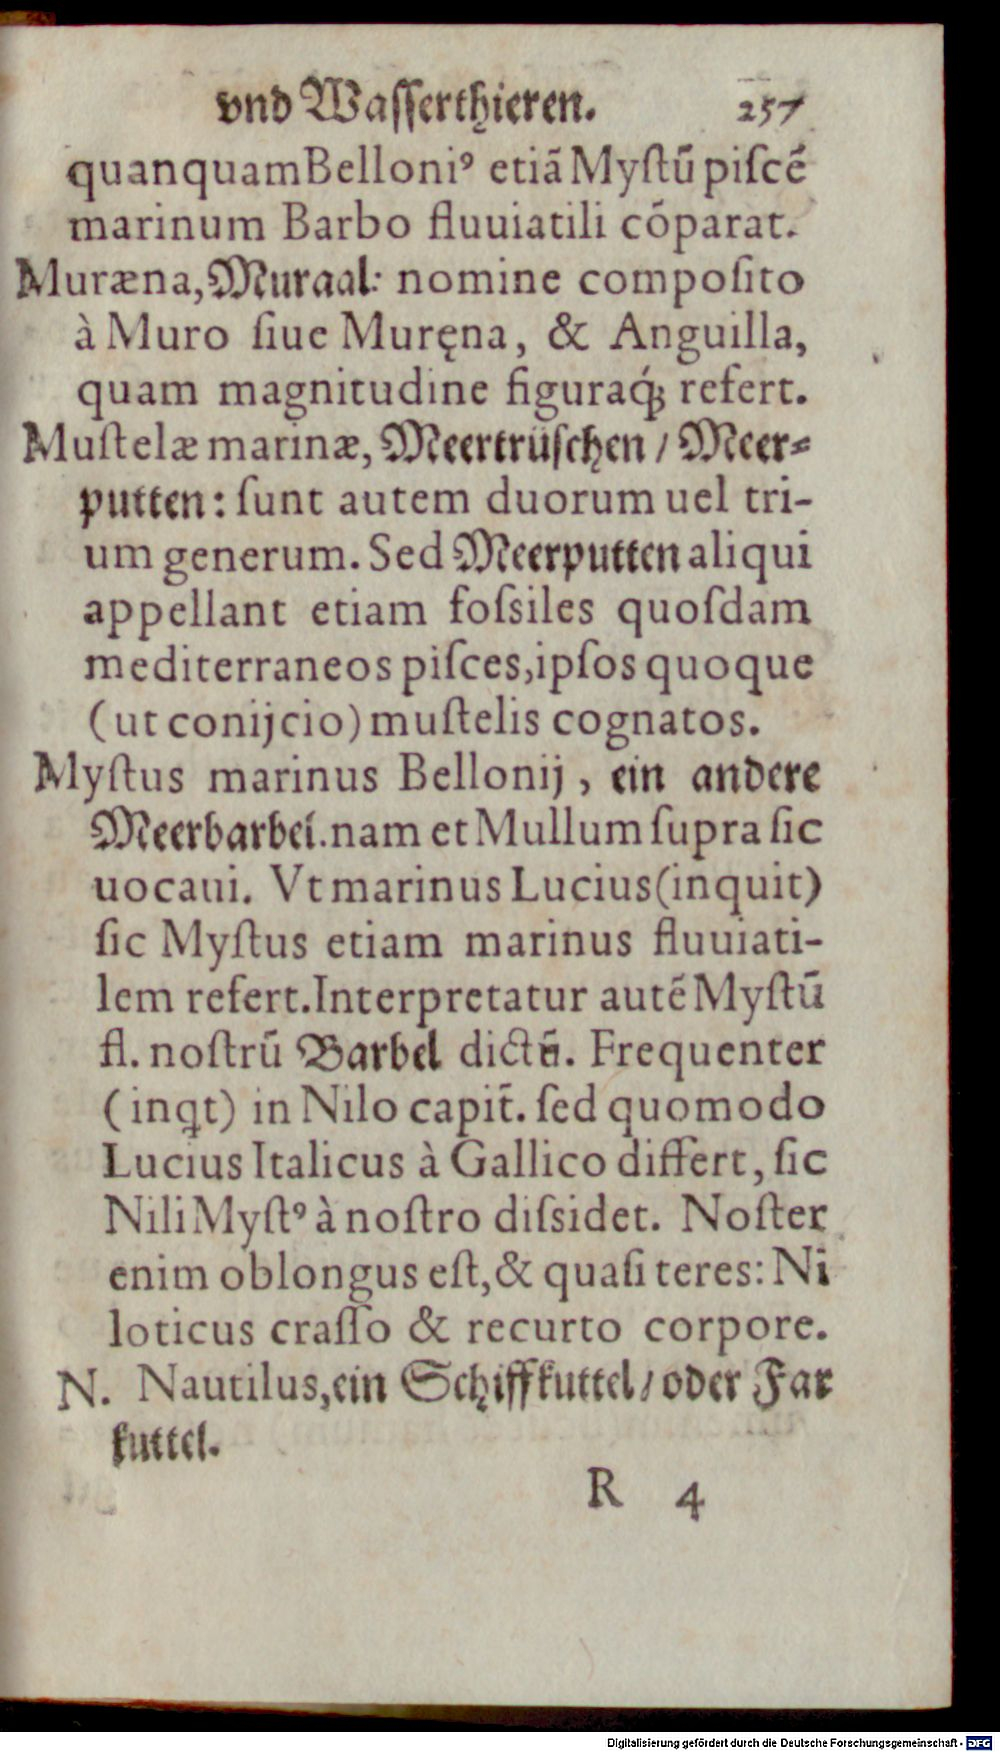 vnd Wasserthieren. 257
quanquam Belloniꝰ etiã Myſtũ piſcẽ
marinum Barbo fluuiatili cõparat.
Muræna, Muraal: nomine compoſito
à Muro ſiue Muręna, & Anguilla,
quam magnitudine figuraq́ꝫ refert.
Muſtelæ marinæ, Meertrüſchen / Meer⸗
putten: ſunt autem duorum uel tri-
um generum. Sed Meerputten aliqui
appellant etiam foſsiles quoſdam
mediterraneos piſces, ipſos quoque
(ut conijcio) muſtelis cognatos.
Myſtus marinus Bellonij, ein andere
Meerbarbel. nam et Mullum ſupra ſic
uocaui. Vt marinus Lucius (inquit)
ſic Myſtus etiam marinus fluuiati-
lem refert. Interpretatur autẽ Myſtũ
fl. noſtrũ Barbel dictũ. Frequenter
(inqt) in Nilo capit̃. ſed quomodo
Lucius Italicus à Gallico differt, ſic
Nili Myſtꝰ à noſtro diſsidet. Noſter
enim oblongus eſt, & quaſi teres: Ni
loticus craſſo & recurto corpore.
N. Nautilus, ein Schiffkuttel / oder Far
kuttel.
R 4
Digitalisierung gefördert durch die Deutsche Forschungsgemeinschaft - DFG